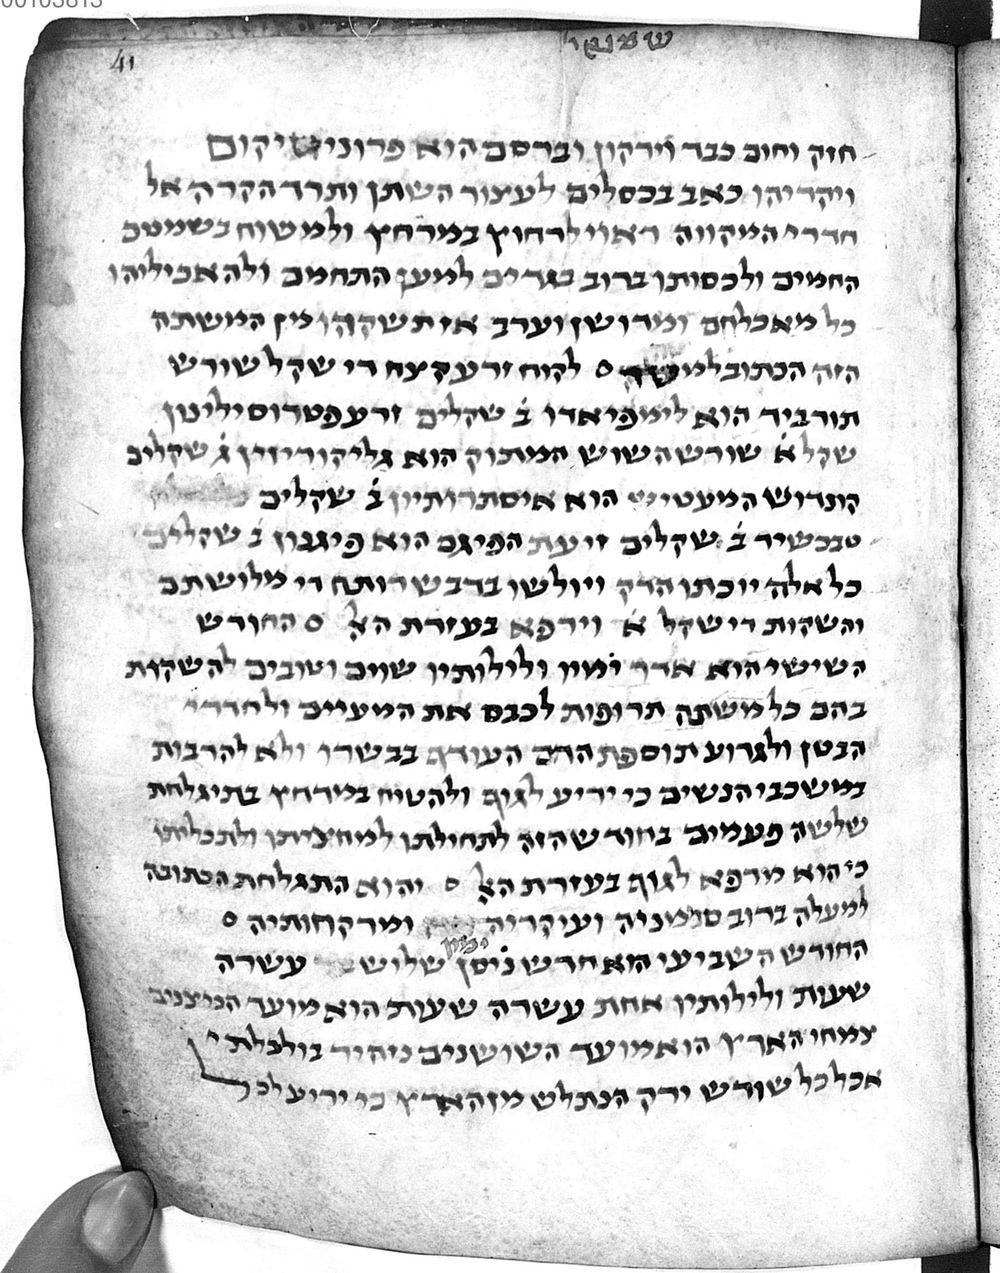 00103813
41
חזק וחום כבד וירקון וברסם הוא פרוניטיקום
ויקדיהו כאב בכסלים לעצור השתן ותרד הקרה אל
חדרי המקווה ראוי לרחוץ במרחץ ולמשוח בשמנים
החמים ולכסותו ברוב בגדים למען התחמם ולהאכיליהו
כל מאכל חם ומדושן וערב אז תשקהו מין המשתה
הזה הכתוב למטה ס לקוח זרע קצח די שקל שורש
תורביד הוא לימפיאדו ב שקלים זרע פטרוסילינון
שקל א שורש השוש המתוק הוא גליקוריזין ג שקלים
קונדוש המעטיש הוא איסתרותיון ב שקלים
טבכשיר ב שקלים זיעת הפיגם הוא פיגנון ב שקלים
כל אלה יוכתו הדק ויולשו בדבש רותח די מלושתם
והשקות די שקל א וירפא בעזרת האל ס החודש
השישי הוא אדר יומיו ולילותיו שוים וטובים להשקות
בהם כל משתה תרופות לכבס את המעיים ולחדרי
הבטן ולגרוע תוספת הדם העודף בבשרו ולא להרבות
במשכבי הנשים כי יריע לגוף ולהטיח במרחץ בתיגלחת
שלשה פעמים בחודש הזה לתחילתו למחציתו ולתכליתו
כי הוא מרפא לגוף בעזרת האל ס והוא התגלחת הכתובה
למעלה ברוב סממניה ועיקריה ומרקחותיה ס
החודש השביעי הוא חדש ניסן יומיו שלוש עשרה
שעות ולילותיו אחת עשרה שעות הוא מועד הניצנים
צמחו הארץ הוא מועד השושנים ניהיר בולבלת י
אכל כל שורש ירק הנתלש מן הארץ כי ירוע לכל